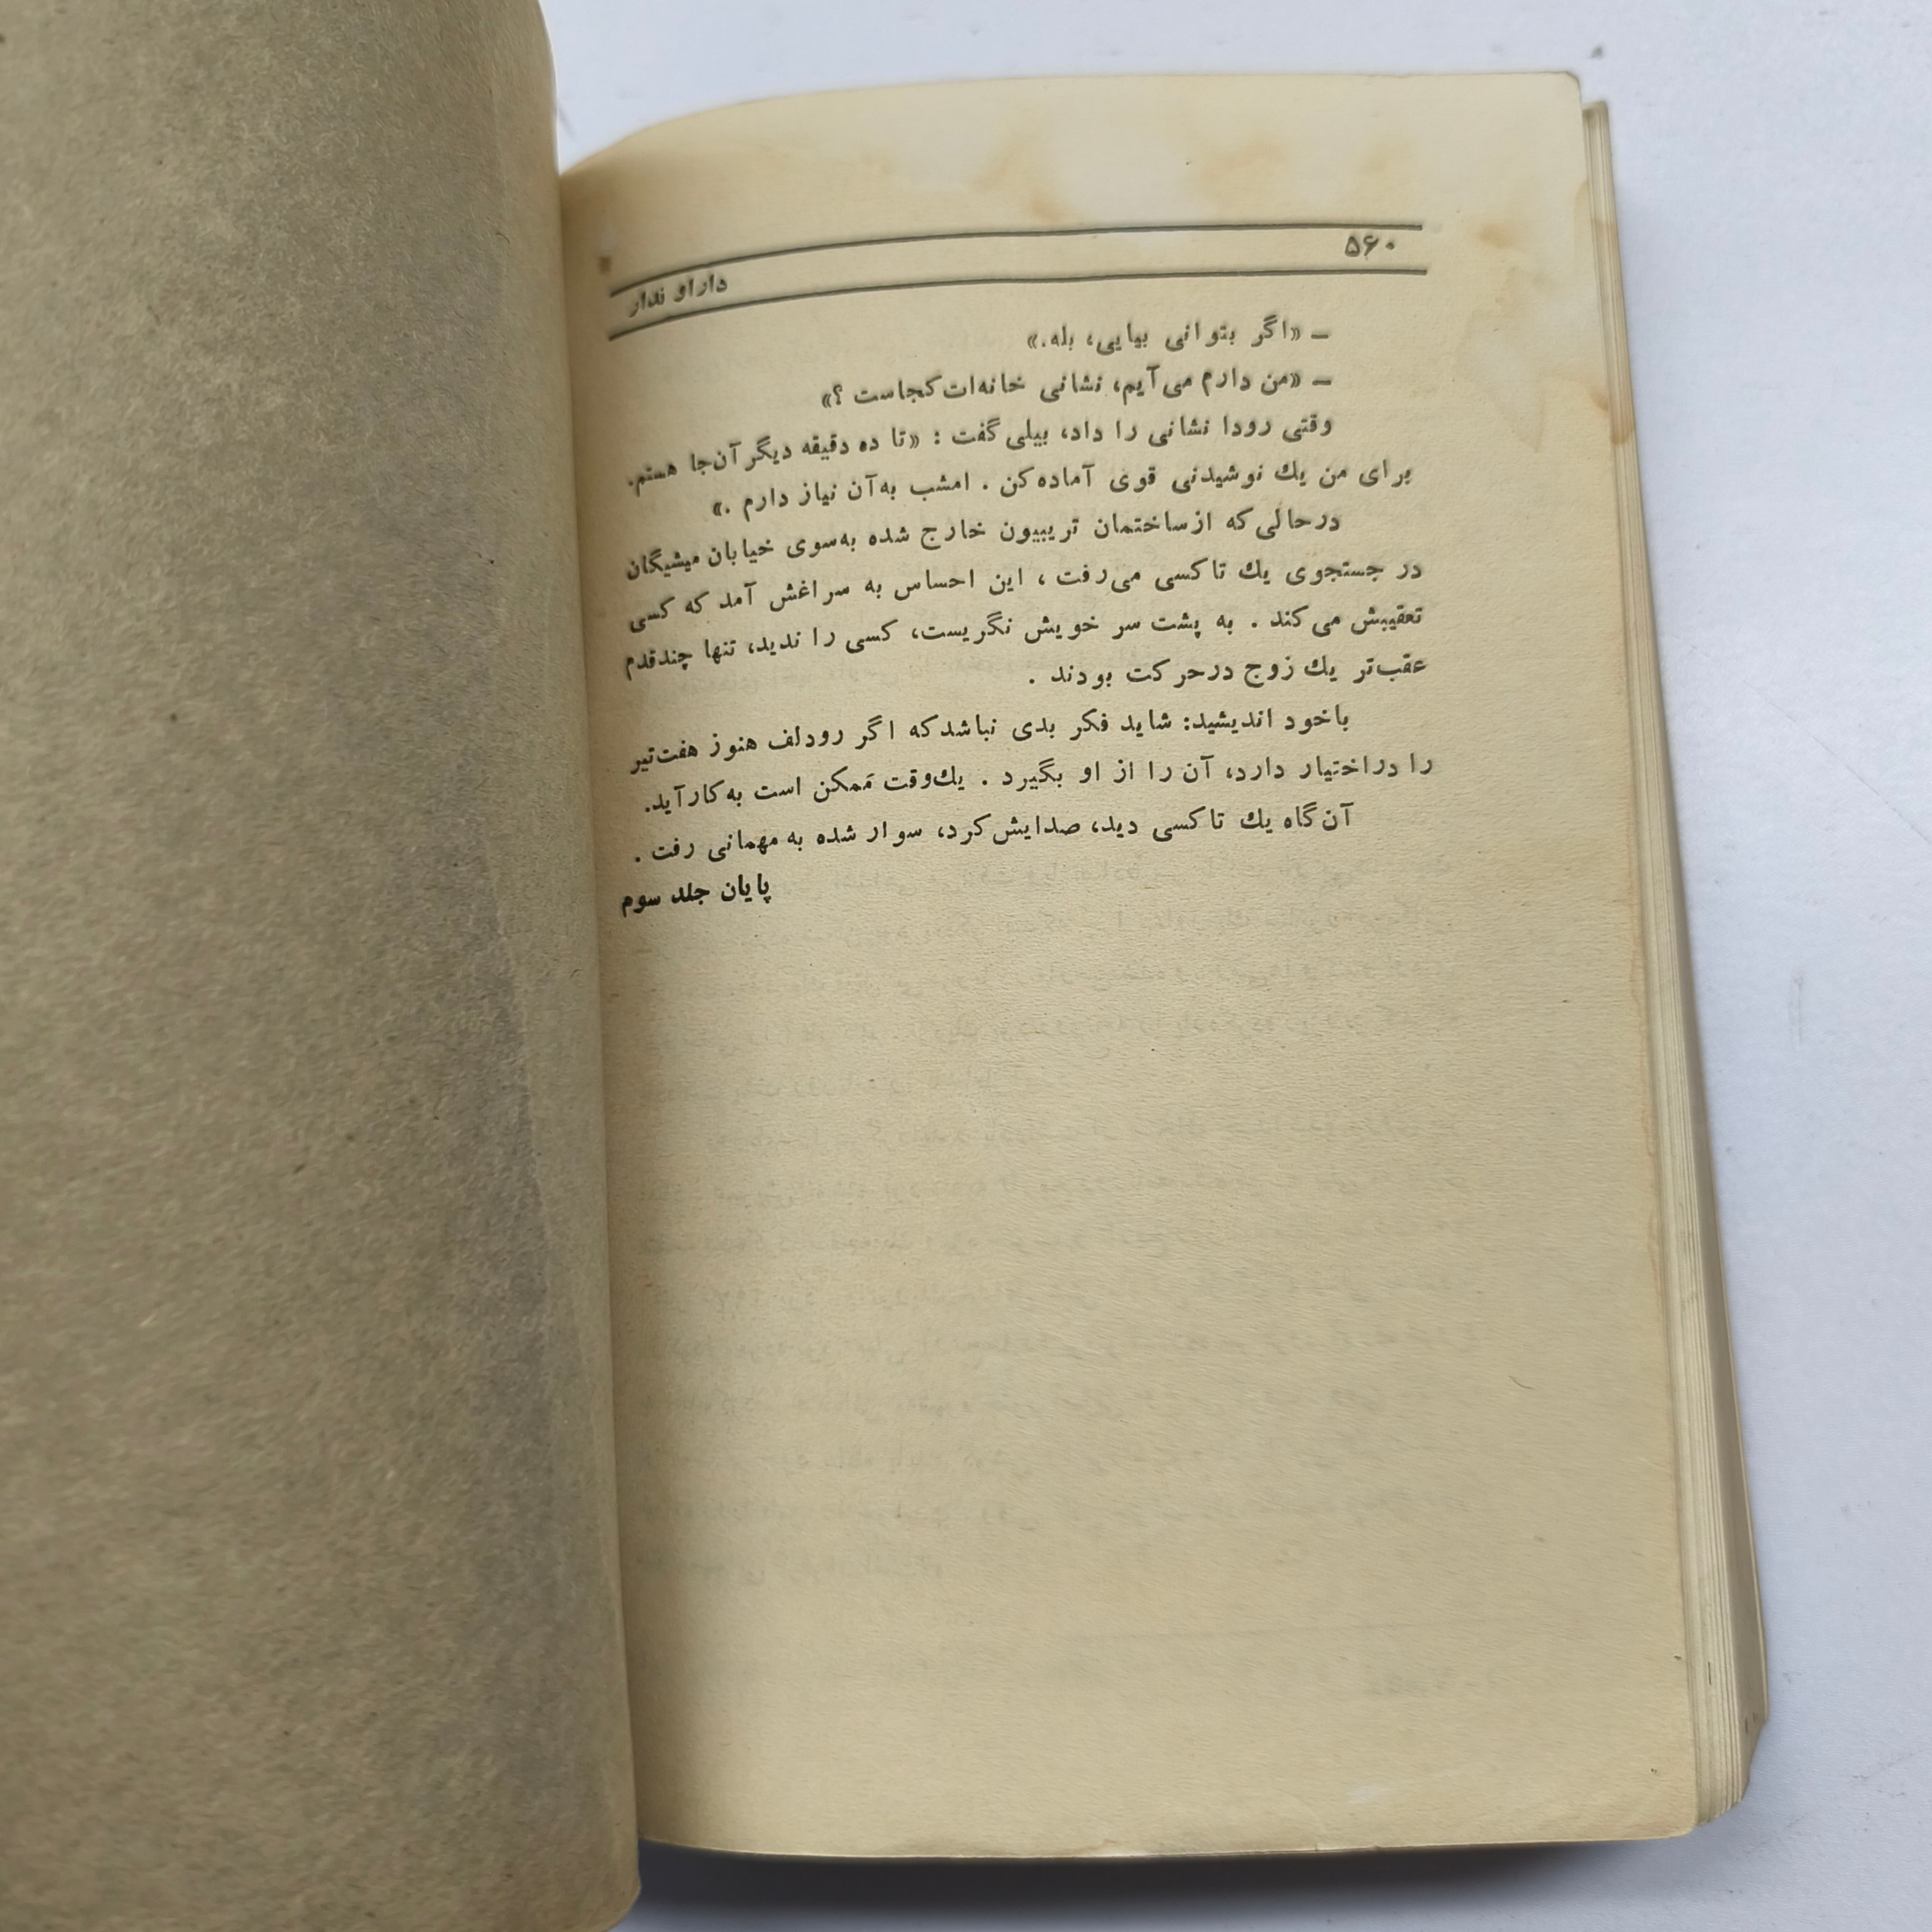 ۵۶۰
دارا و ندار
ــ «اگر بتوانی بیایی، بله.»
ــ «من دارم می‌آیم، نشانی خانه‌ات کجاست ؟»
وقتی رودا نشانی را داد، بیلی گفت : «تا ده دقیقه دیگر آن‌جا هستم.
برای من یك نوشیدنی قوی آماده کن . امشب به آن نیاز دارم .»
درحالی که از ساختمان تریبیون خارج شده به‌سوی خیابان میشیگان
در جستجوی یك تاکسی می‌رفت ، این احساس به سراغش آمد که کسی
تعقیبش می‌کند . به پشت سر خویش نگریست، کسی را ندید، تنها چندقدم
عقب‌تر یك زوج درحرکت بودند .
باخود اندیشید: شاید فکر بدی نباشد که اگر رودلف هنوز هفت‌تیر
را دراختیار دارد، آن را از او بگیرد . یك‌وقت ممکن است به کار آید.
آن‌گاه یك تاکسی دید، صدایش کرد، سوار شده به مهمانی رفت .
پایان جلد سوم